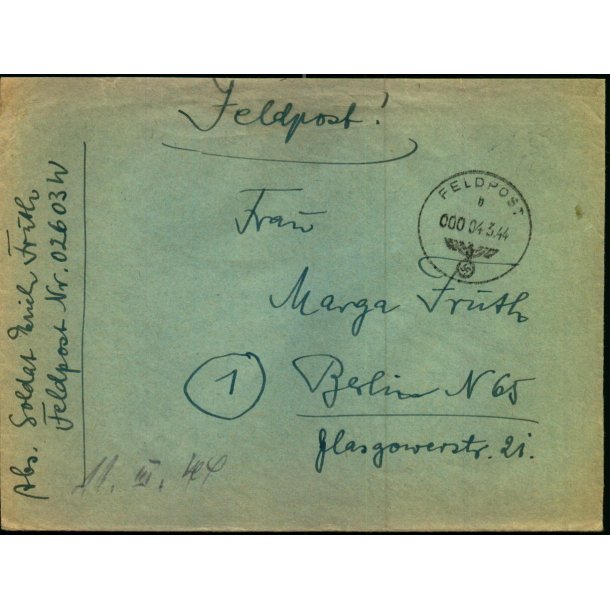 Feldpost!
FELDPOST
b
000 04.3.44
Frau
Marga Früth
1
Berlin N 65
Glasgowerstr. 21.
11. III. 44
Abs. Soldat Erich Früth
Feldpost Nr. 02603 W